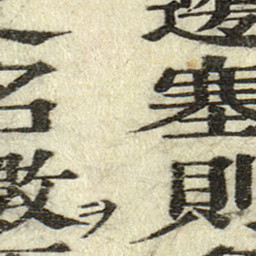 邊塞則
名數ヲ